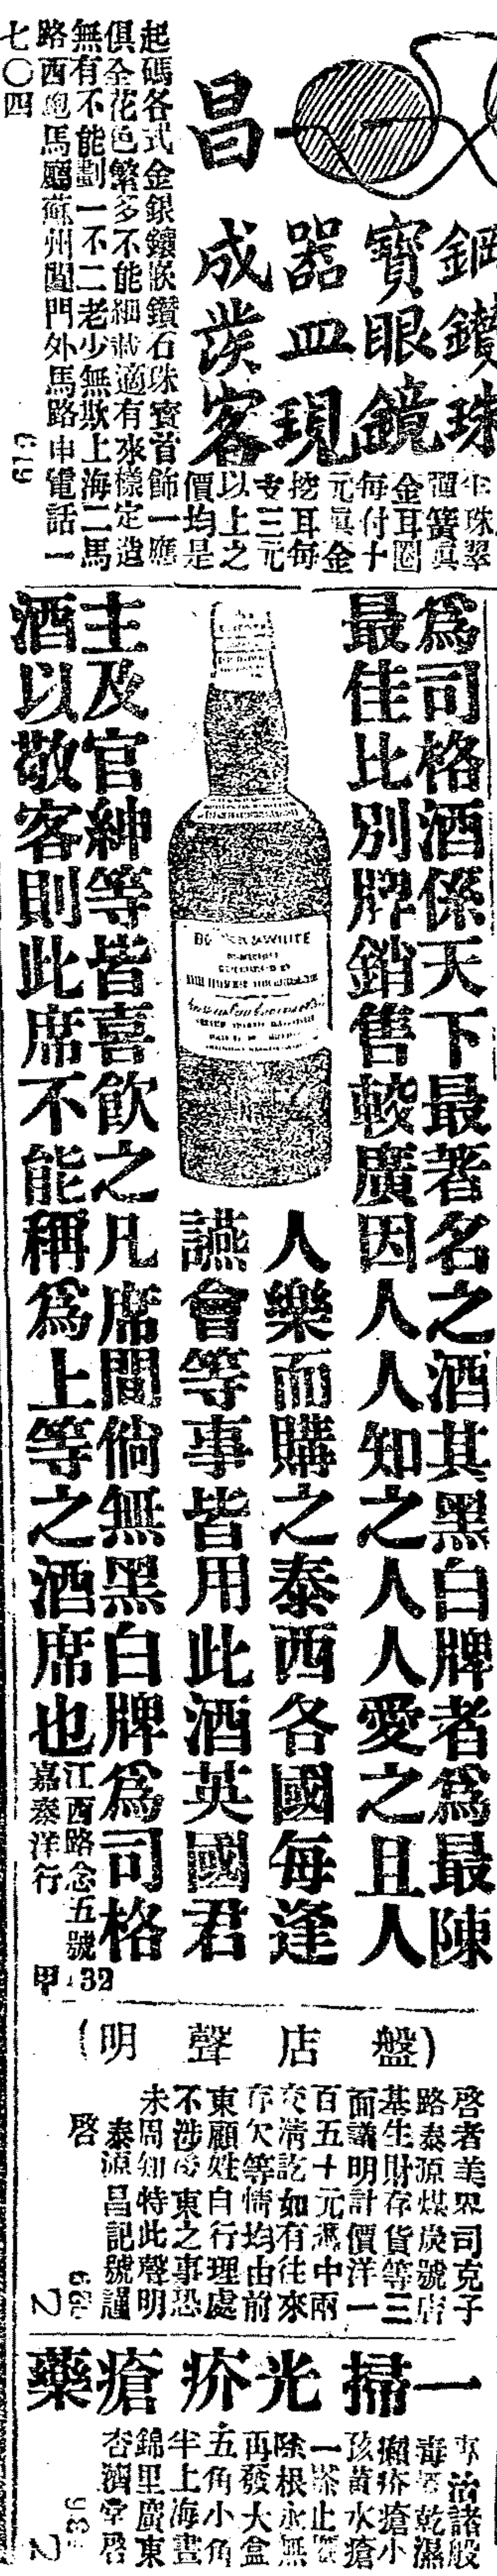 鋼鑽珠
寶眼鏡
器皿現
昌
成發客
生珠翠
彈簧真
金耳圈
每付十
元真金
挖耳每
支三元
以上之
價均是
起碼各式金銀鑲嵌鑽石珠寶首飾一應
俱全花色繁多不能細載適有來樣定造
無有不能劃一不二老少無欺上海二馬
路西跑馬廳蘇州閶門外馬路中電話一
七〇四
619
為司格酒係天下最著名之酒其黑白牌者為最陳
最佳比別牌銷售較廣因人人知之人人愛之且人
人樂而購之泰西各國每逢
讌會等事皆用此酒英國君
主及官紳等皆喜飲之凡席間倘無黑白牌為司格
酒以敬客則此席不能稱為上等之酒席也
江西路念五號
嘉泰洋行
甲 132
(盤店聲明)
啓者美界司克子
路泰源煤炭號店
基生財存貨等三
面議明計價洋一
百五十元憑中兩
交清訖如有往來
存欠等情均由前
東顧姓自行理處
不涉後東之事恐
未周知特此聲明
泰源昌記號謹
啓
2
一掃光疥瘡藥
專治諸般
毒瘡乾濕
癩疥瘡小
孩黃水瘡
一搽止癢
除根永無
再發大盒
五角小角
半上海晝
錦里廣東
杏濟堂啓
2